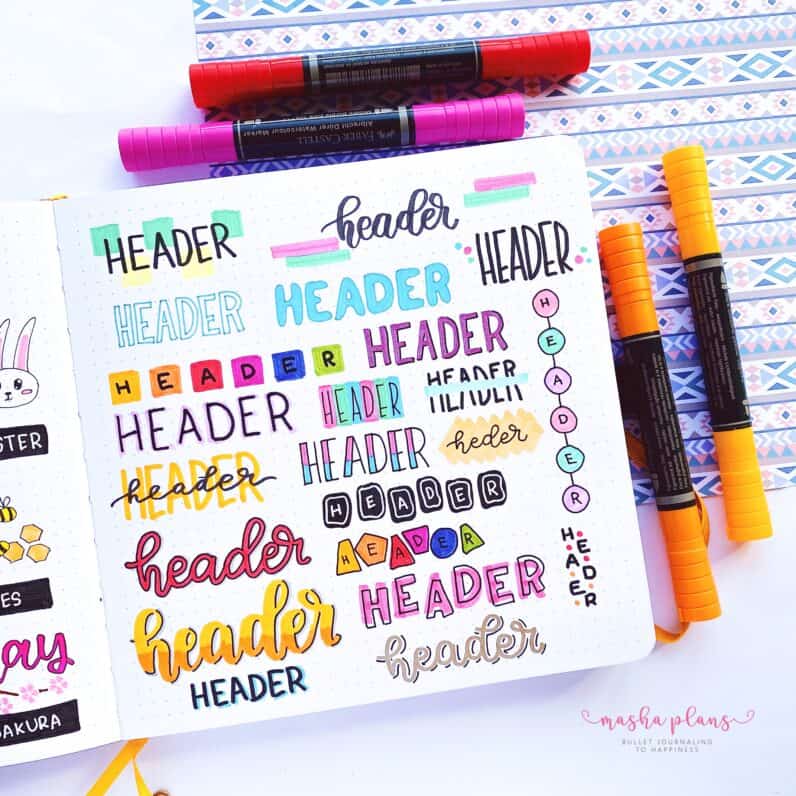 FABER-CASTELL
Albrecht Dürer Watercolour Marker
STER
ES
ay
SAKURA
HEADER
header
HEADER
HEADER
HEADER
HEADER
HEADER
HEADER
HEADER
HEADER
HEADER
heder
HEADER
header
HEADER
HEADER
header
HEADER
HEADER
HEADER
header
header
HEADER
masha plans
BULLET JOURNALING
TO HAPPINESS